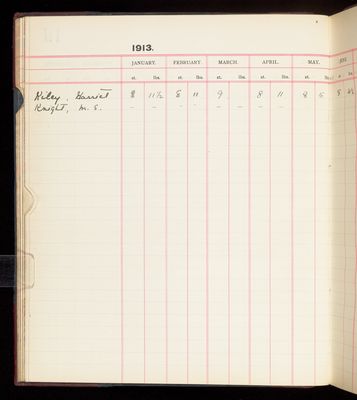 1913.
JANUARY. FEBRUARY. MARCH. APRIL. MAY. JUNE
st. lbs. st. lbs. st. lbs. st. lbs. st. lbs. st. lbs.
Kiley, Harriet 8 11½ 8 11 9 8 11 8 6 8
Knight, M. S. – – – – – – – –